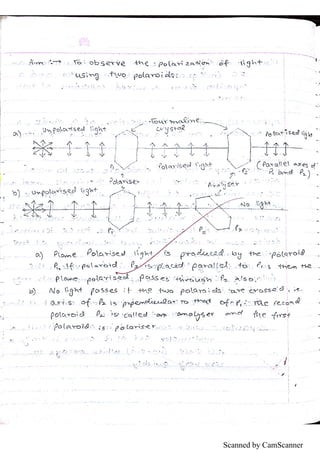 Aim :→ To observe the polarization of light
using two polaroids.
Tourmaline
crystal
a) Unpolarised light
Polarised light
P1
Polarised light
P2
(Parallel axes of
P1 and P2)
Polariser
Analyser
b) unpolarised light
No light
P1
P2
a) Plane Polarised light is produced by the polaroid
P1. If polaroid P2 is placed parallel to P1, then the
plane polarised passes through P2 Also,
b) No light passes if the two polaroids are crossed, i.e.
axis of P2 is prependicular to that of P1. The second
polaroid P2 is called an analyser and the first
Polaroid is polariser.
Scanned by CamScanner